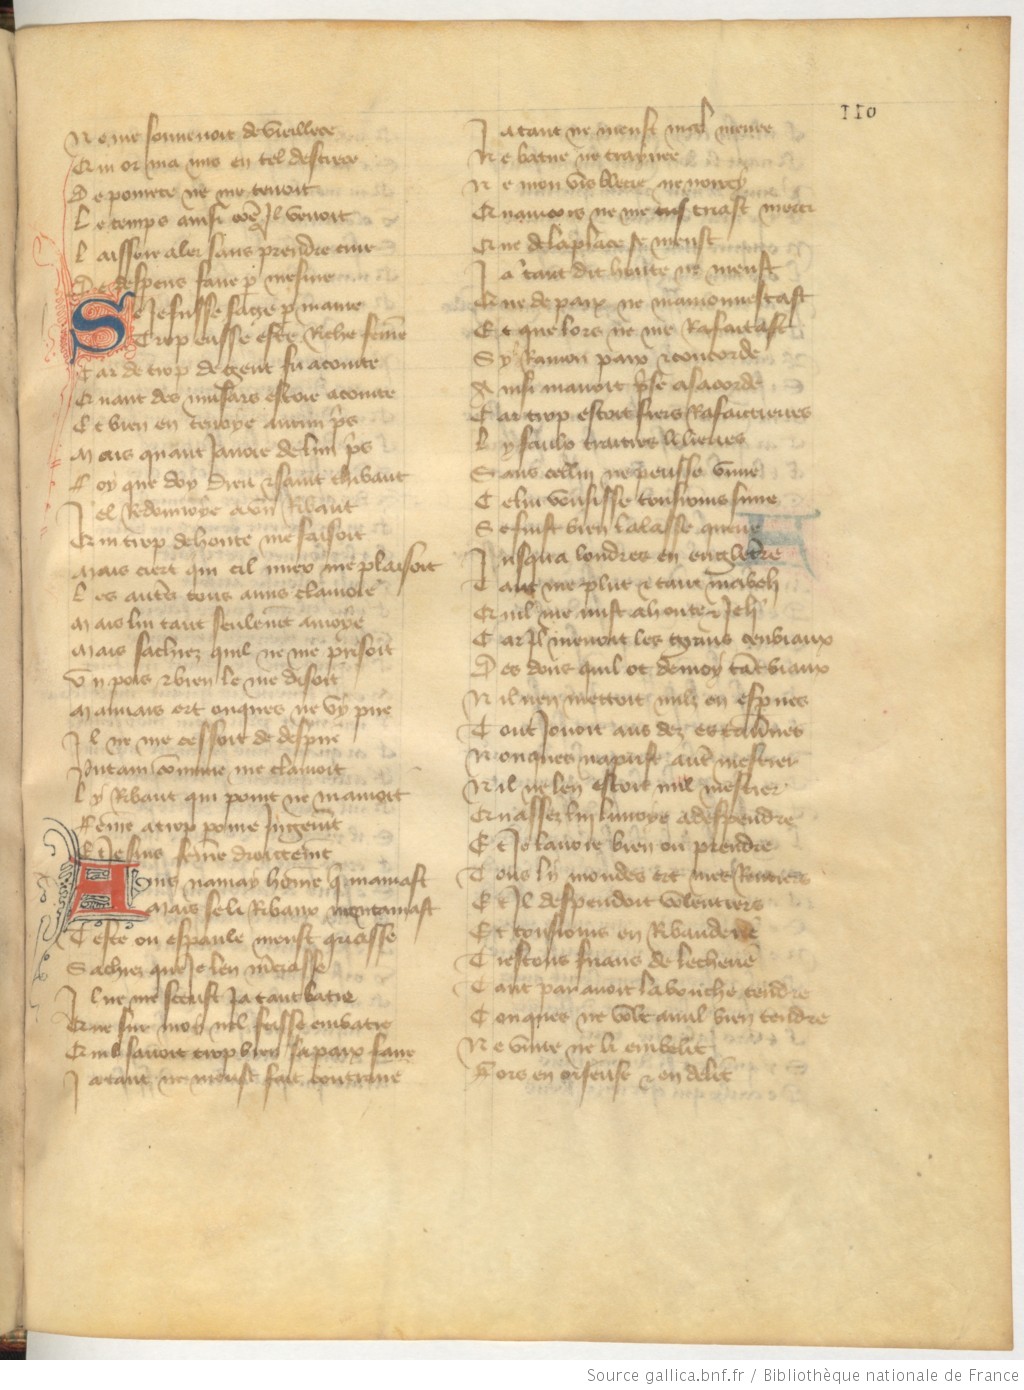 110
Ne me souvenoit de vieillece
Qui or ma mis en tel destrece
De povrete ne me tenoit
Le temps ainsi come Il venoit
Laissoie aler sans prendre cure
De despens faire p mesure
Se Je fusse sage p mame
Trop eusse este Riche feme
Car de trop de gent fu acointe
Quant des musars estoie acointe
Et bien en tenoye aucun pris
Mais quant Javoie de lun pris
Foy que doy dieu & saint thibaut
Jel Redonnoye a un Ribaut
Qui trop de honte me faisoit
Mais ciert qui cil miex me plaisoit
Les autres tous amis clamoie
Mais lui tant seulemet amoye
Mais sachiez quil ne me prisoit
Un pois & bien le me disoit
Mauvais ert onques ne vy pire
Il ne me cessoit de despire
Putain commune me clamoit
Ly Ribaut qui point ne mamoit
Feme a trop povre Jugement
Et Je suis feme droictement
Ains namay home qui mamast
Mais se li Ribaux mentamast
Teste ou espaule meust quasse
Sachiez que Je len merciasse
Il ne me sceust Ja tant batre
Que sur moy nel feisse embatre
Quil savoit trop bien sa paix faire
Ja tant ne meust fait contraire
Ja tant ne meust mal menee
Ne batue ne traynee
Ne mon vis blecie ne noircy
Quaincois ne me criast merci
Que de la place se meust
Ja tant dit honte ne meust
Que de paix ne mamonnestast
Et que lors ne me Rafaitast
Sy Ravion paix & concorde
Ainsi mavoit prise a sa corde
Car trop estoit fiers Rafaitierres
Ly faulx traitres li lierres
Sans cellui ne peusse vivre
Celui vousisse tousiours sivre
Se fuist bien lalasse querre
Jusqua londres en engleterre
Tant me plut & tant mabeli
Quil me mist a honte & Je li
Car Il menoit les grans cembiaux
Des dons quil ot de moy tant biaux
Nil nen mettoit nulz en espnes
Tout Jouoit aus dez es tavernes
Nonques naprist autre mestier
Nil ne len estoit nul mestier
Quassez lui livroye a despendre
Et Je lavoie bien ou prendre
Tous ly mondes ert mes Rentiers
Et Il despendoit voulentiers
Et tousiours en Ribauderie
Trestous frians de lecherie
Tant par avoit la bouche tendre
Conques ne volt a nul bien tendre
Ne vivre ne li embelit
Fors en oiseuse & en delit
Source gallica.bnf.fr / Bibliothèque nationale de France